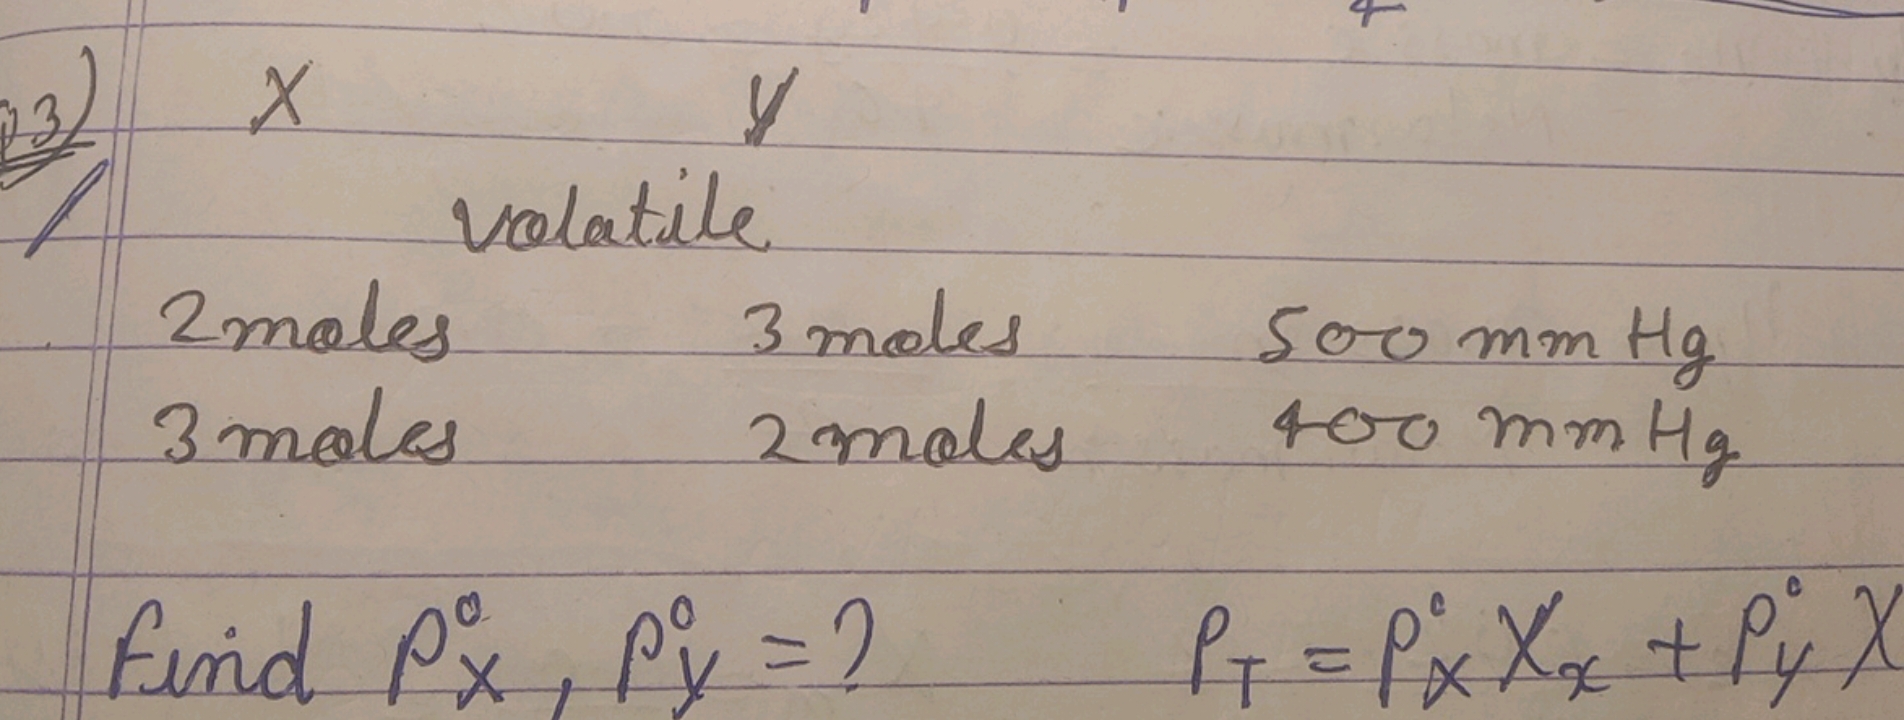 Q3) X Y
volatile
2 moles 3 moles 500 mm Hg
3 moles 2 moles 400 mm Hg
Find P°x, P°y = ? PT = P°x Xx + P°y X